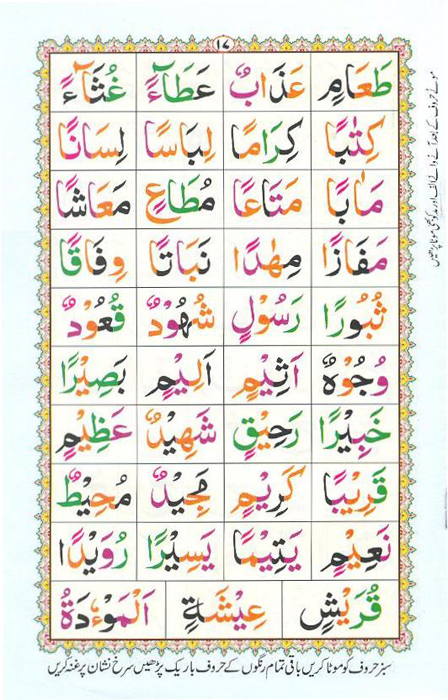 ١٧
طَعَامٍ عَذَابٌ عَطَآءً غُثَآءً
كِتٰبًا كِرَامًا لِبَاسًا لِسَانًا
مَاٰبًا مَتَاعًا مُطَاعٍ مَعَاشًا
مَفَازًا مِهٰدًا نَبَاتًا وِفَاقًا
ثُبُورًا رَسُوْلٍ شُهُوْدٌ قُعُوْدٌ
وُجُوْهٌ اَثِيْمٍ اَلِيْمٍ بَصِيْرًا
خَبِيْرًا رَحِيْقٍ شَهِيْدٌ عَظِيْمٍ
قَرِيْبًا كَرِيْمٍ مَجِيْدٌ مُحِيْطٌ
نَعِيْمٍ يَتِيْمًا يَسِيْرًا رُوَيْدًا
قُرَيْشٍ عِيْشَةٍ اَلْمَوْءٗدَةُ
سبز حروف کو موٹا کریں باقی تمام رنگوں کے حروف باریک پڑھیں سرخ نشان پر غنہ کریں
موٹے حروف کے بعد آنے والے الف اور مدہ کو بھی موٹا پڑھیں